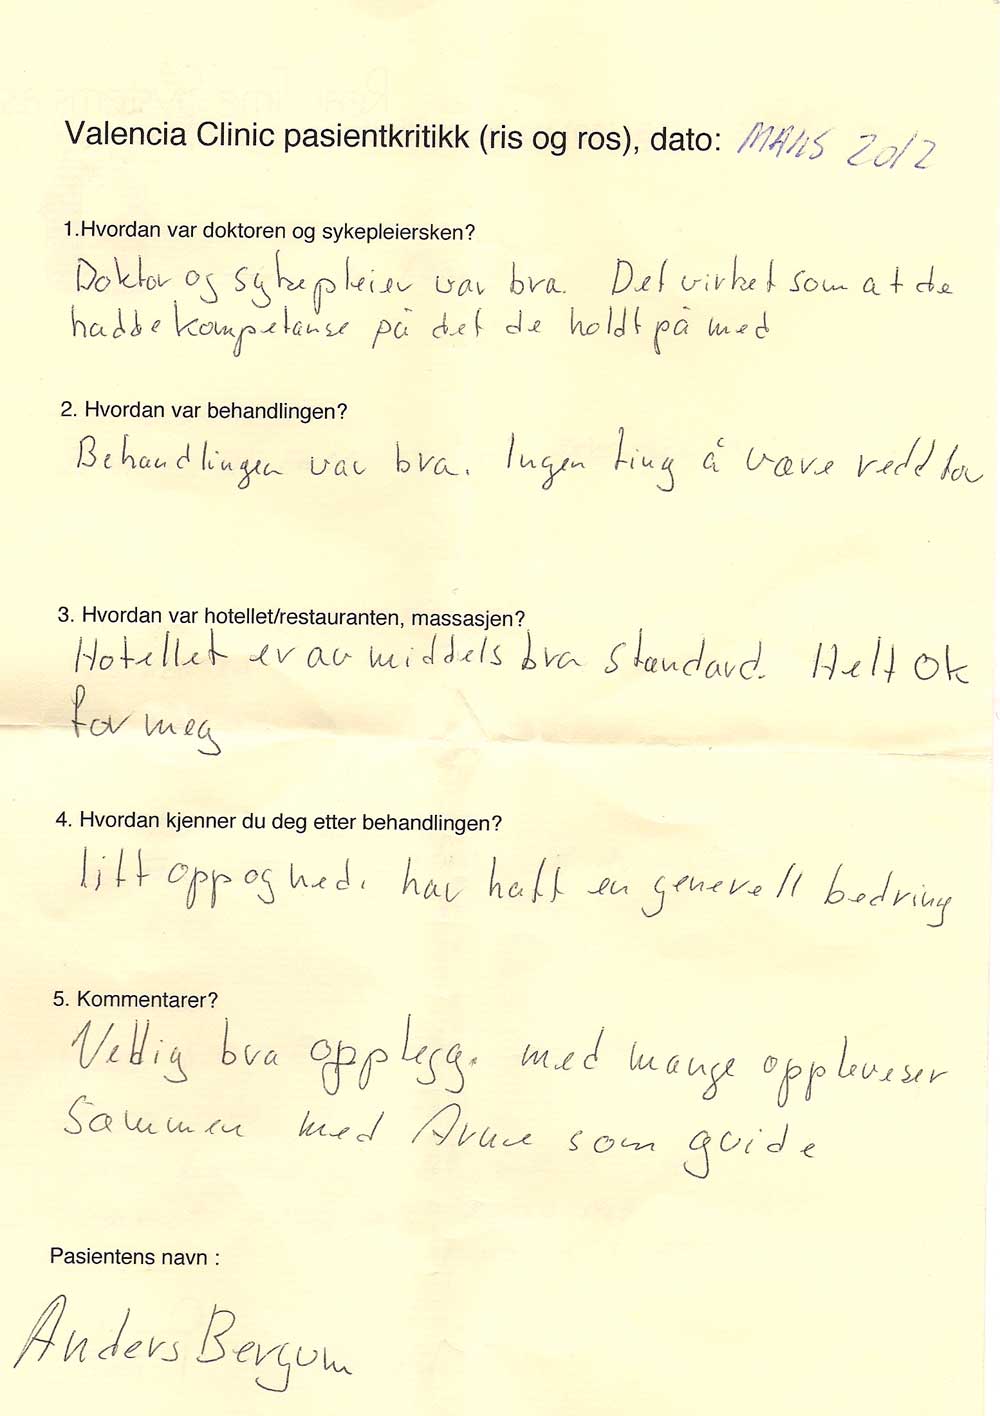 Valencia Clinic pasientkritikk (ris og ros), dato: MARS 2012
1.Hvordan var doktoren og sykepleiersken?
Doktor og sykepleier var bra. Det virket som at de
hadde kompetanse på det de holdt på med
2. Hvordan var behandlingen?
Behandlingen var bra. Ingen ting å være redd for
3. Hvordan var hotellet/restauranten, massasjen?
Hotellet er av middels bra standard. Helt OK
for meg
4. Hvordan kjenner du deg etter behandlingen?
litt opp og ned. har hatt en generell bedring
5. Kommentarer?
Veldig bra opplegg. med mange oppleveser
sammen med Arne som guide
Pasientens navn :
Anders Bergum